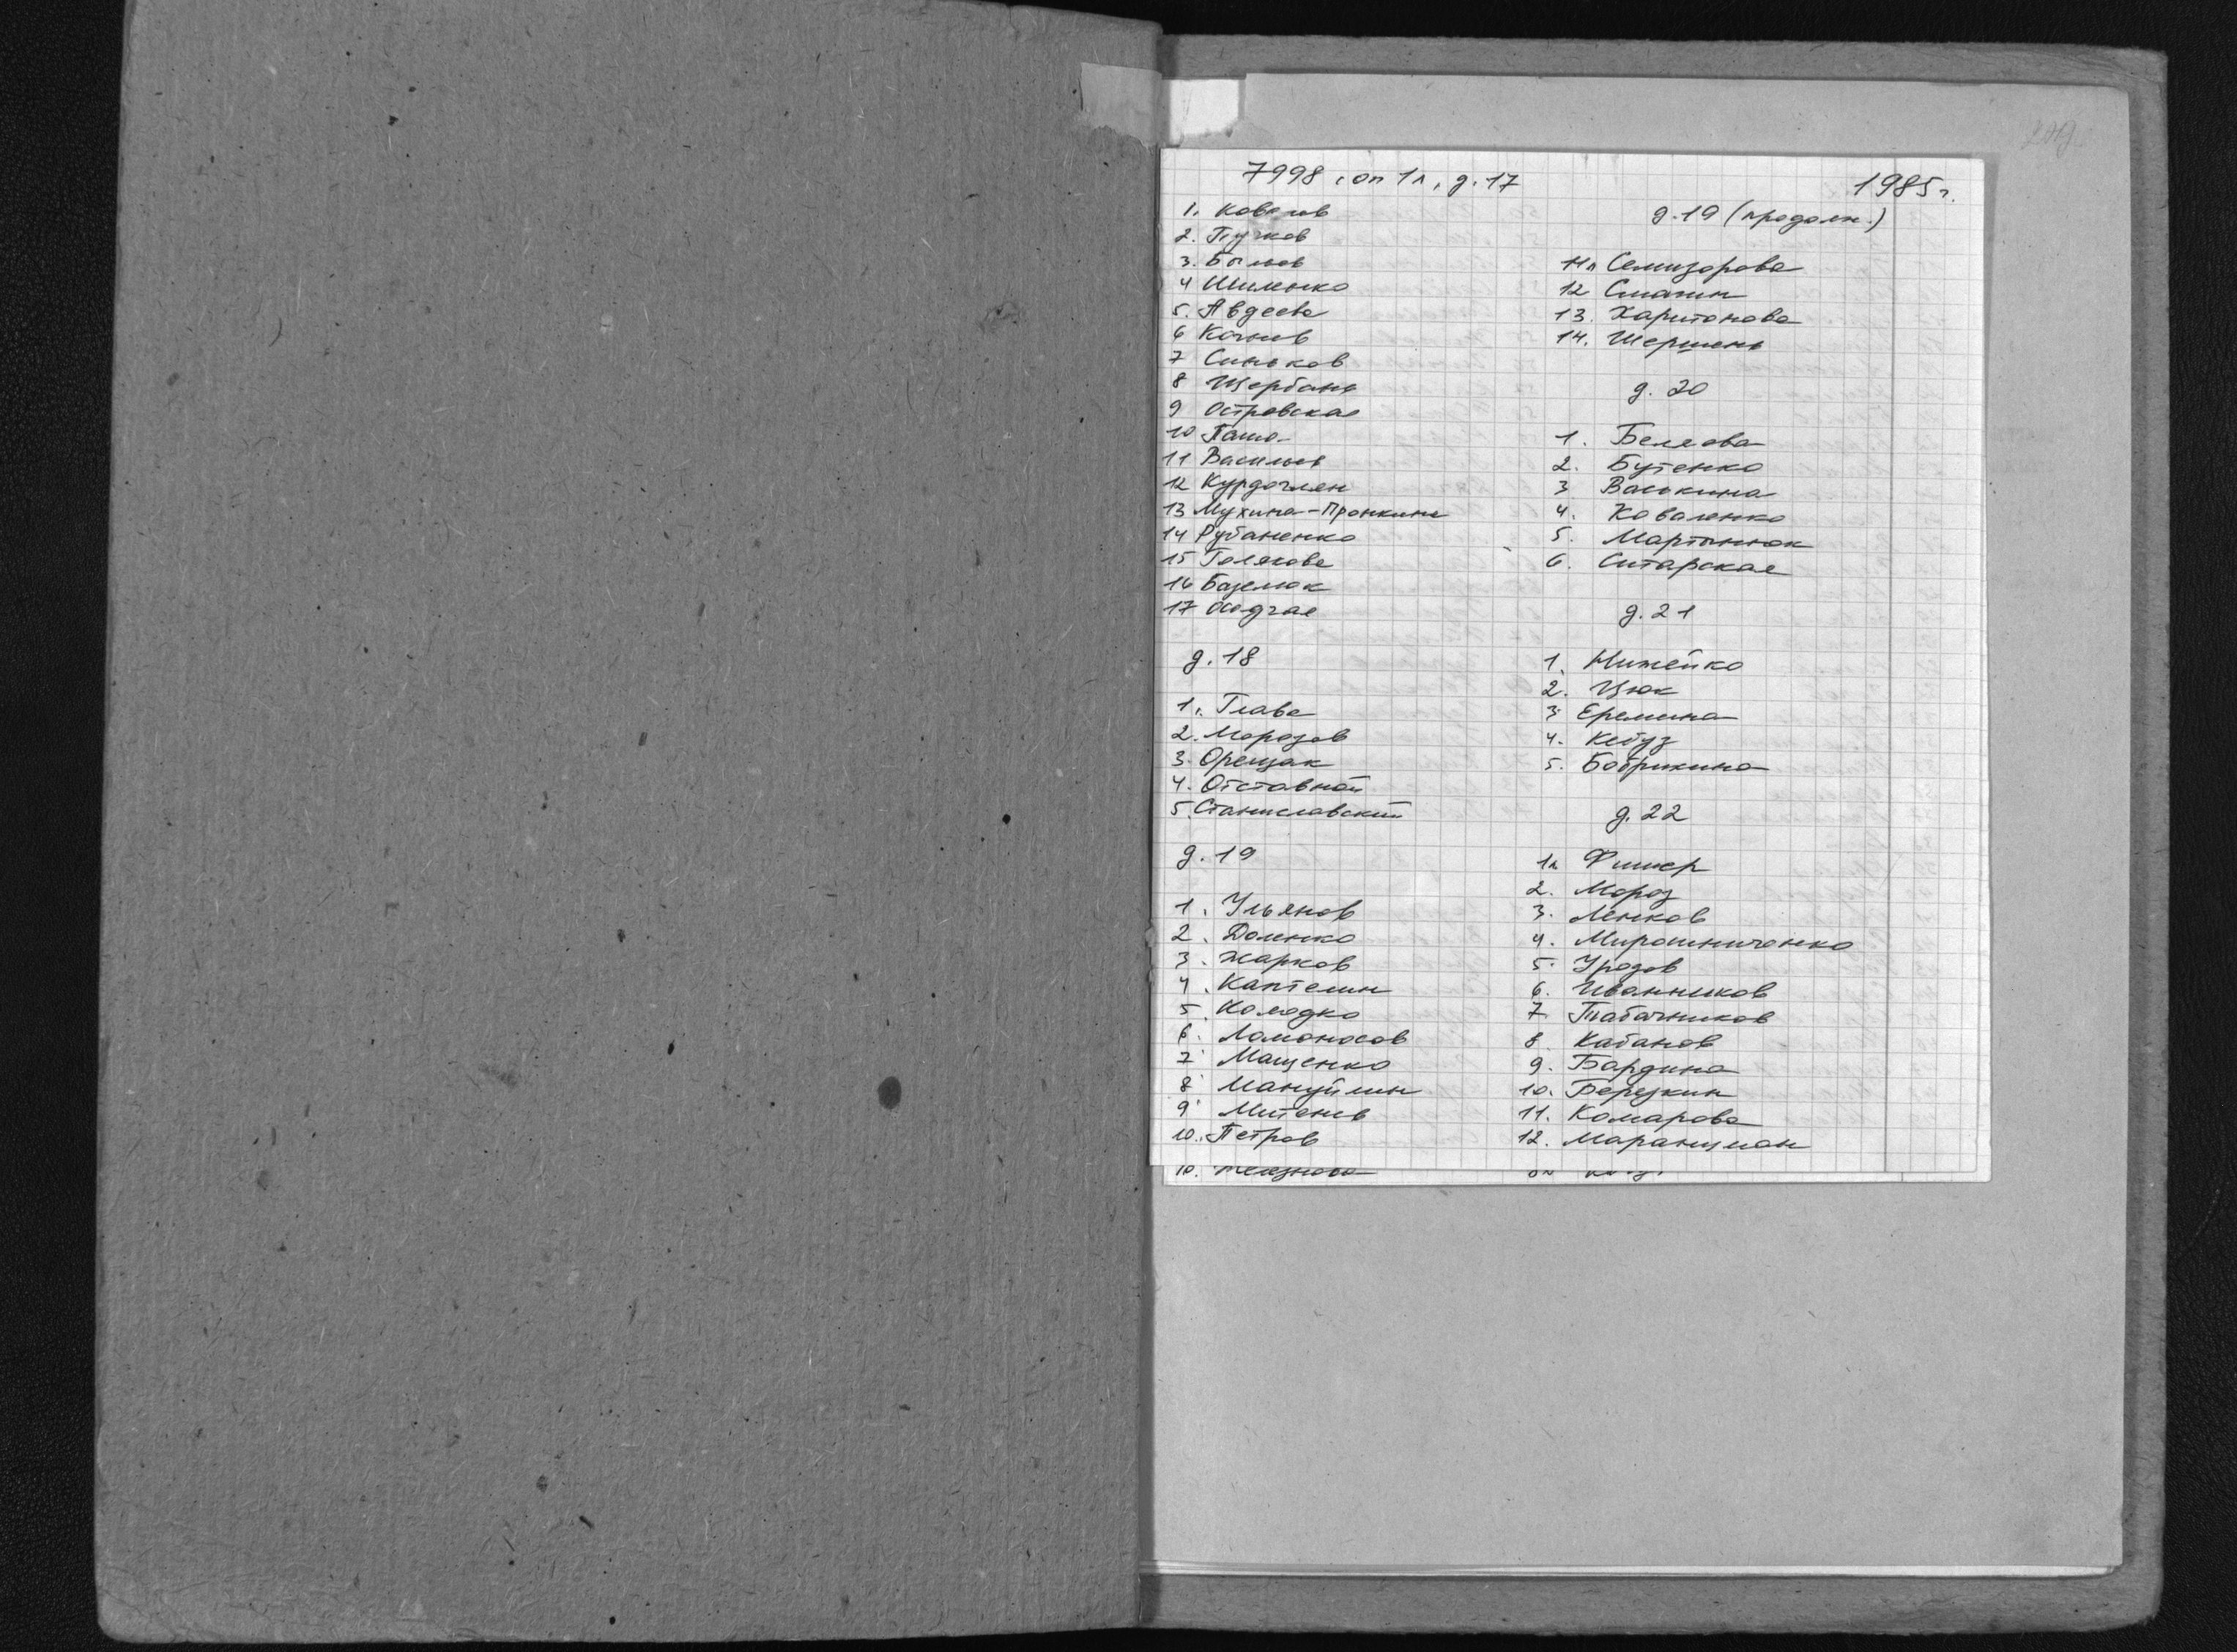 7998, оп 1л, д. 17
1985 г.
1. Ковалев
2. Пучков
3. Быков
4 Шиленко
5. Авдеева
6 Качнев
7 Синьков
8 Щербань
9 Островская
10
11 Васильев
12 Курдоглян
13 Мухина-Пронкина
14 Рубаненко
15 Полякова
16 Базелюк
17 Осадчая
д. 18
1. Глава
2. Морозов
3. Орещак
4. Отставной
5. Станиславский
д. 19
1. Ульянов
2. Доленко
3. Жарков
4. Каптелин
5. Колодко
6. Ломоносов
7 Мащенко
8 Мануйлин
9 Митенев
10. Петров
д. 19 (продолж.)
11 Семизорова
12 Смагин
13. Харитонова
14. Шершень
д. 20
1. Белеова
2. Бутенко
3 Васькина
4. Коваленко
5. Мартынюк
6. Ситарская
д. 21
1. Нижейко
2. Цюк
3 Еремина
4. Кебуз
5. Бобрикина
д. 22
1. Фишер
2. Мороз
3. Ленков
4. Мирошниченко
5. Уразов
6. Иванников
7 Табачников
8. Кабанов
9. Бардина
10. Березкин
11. Комарова
12. Маранцман
10.